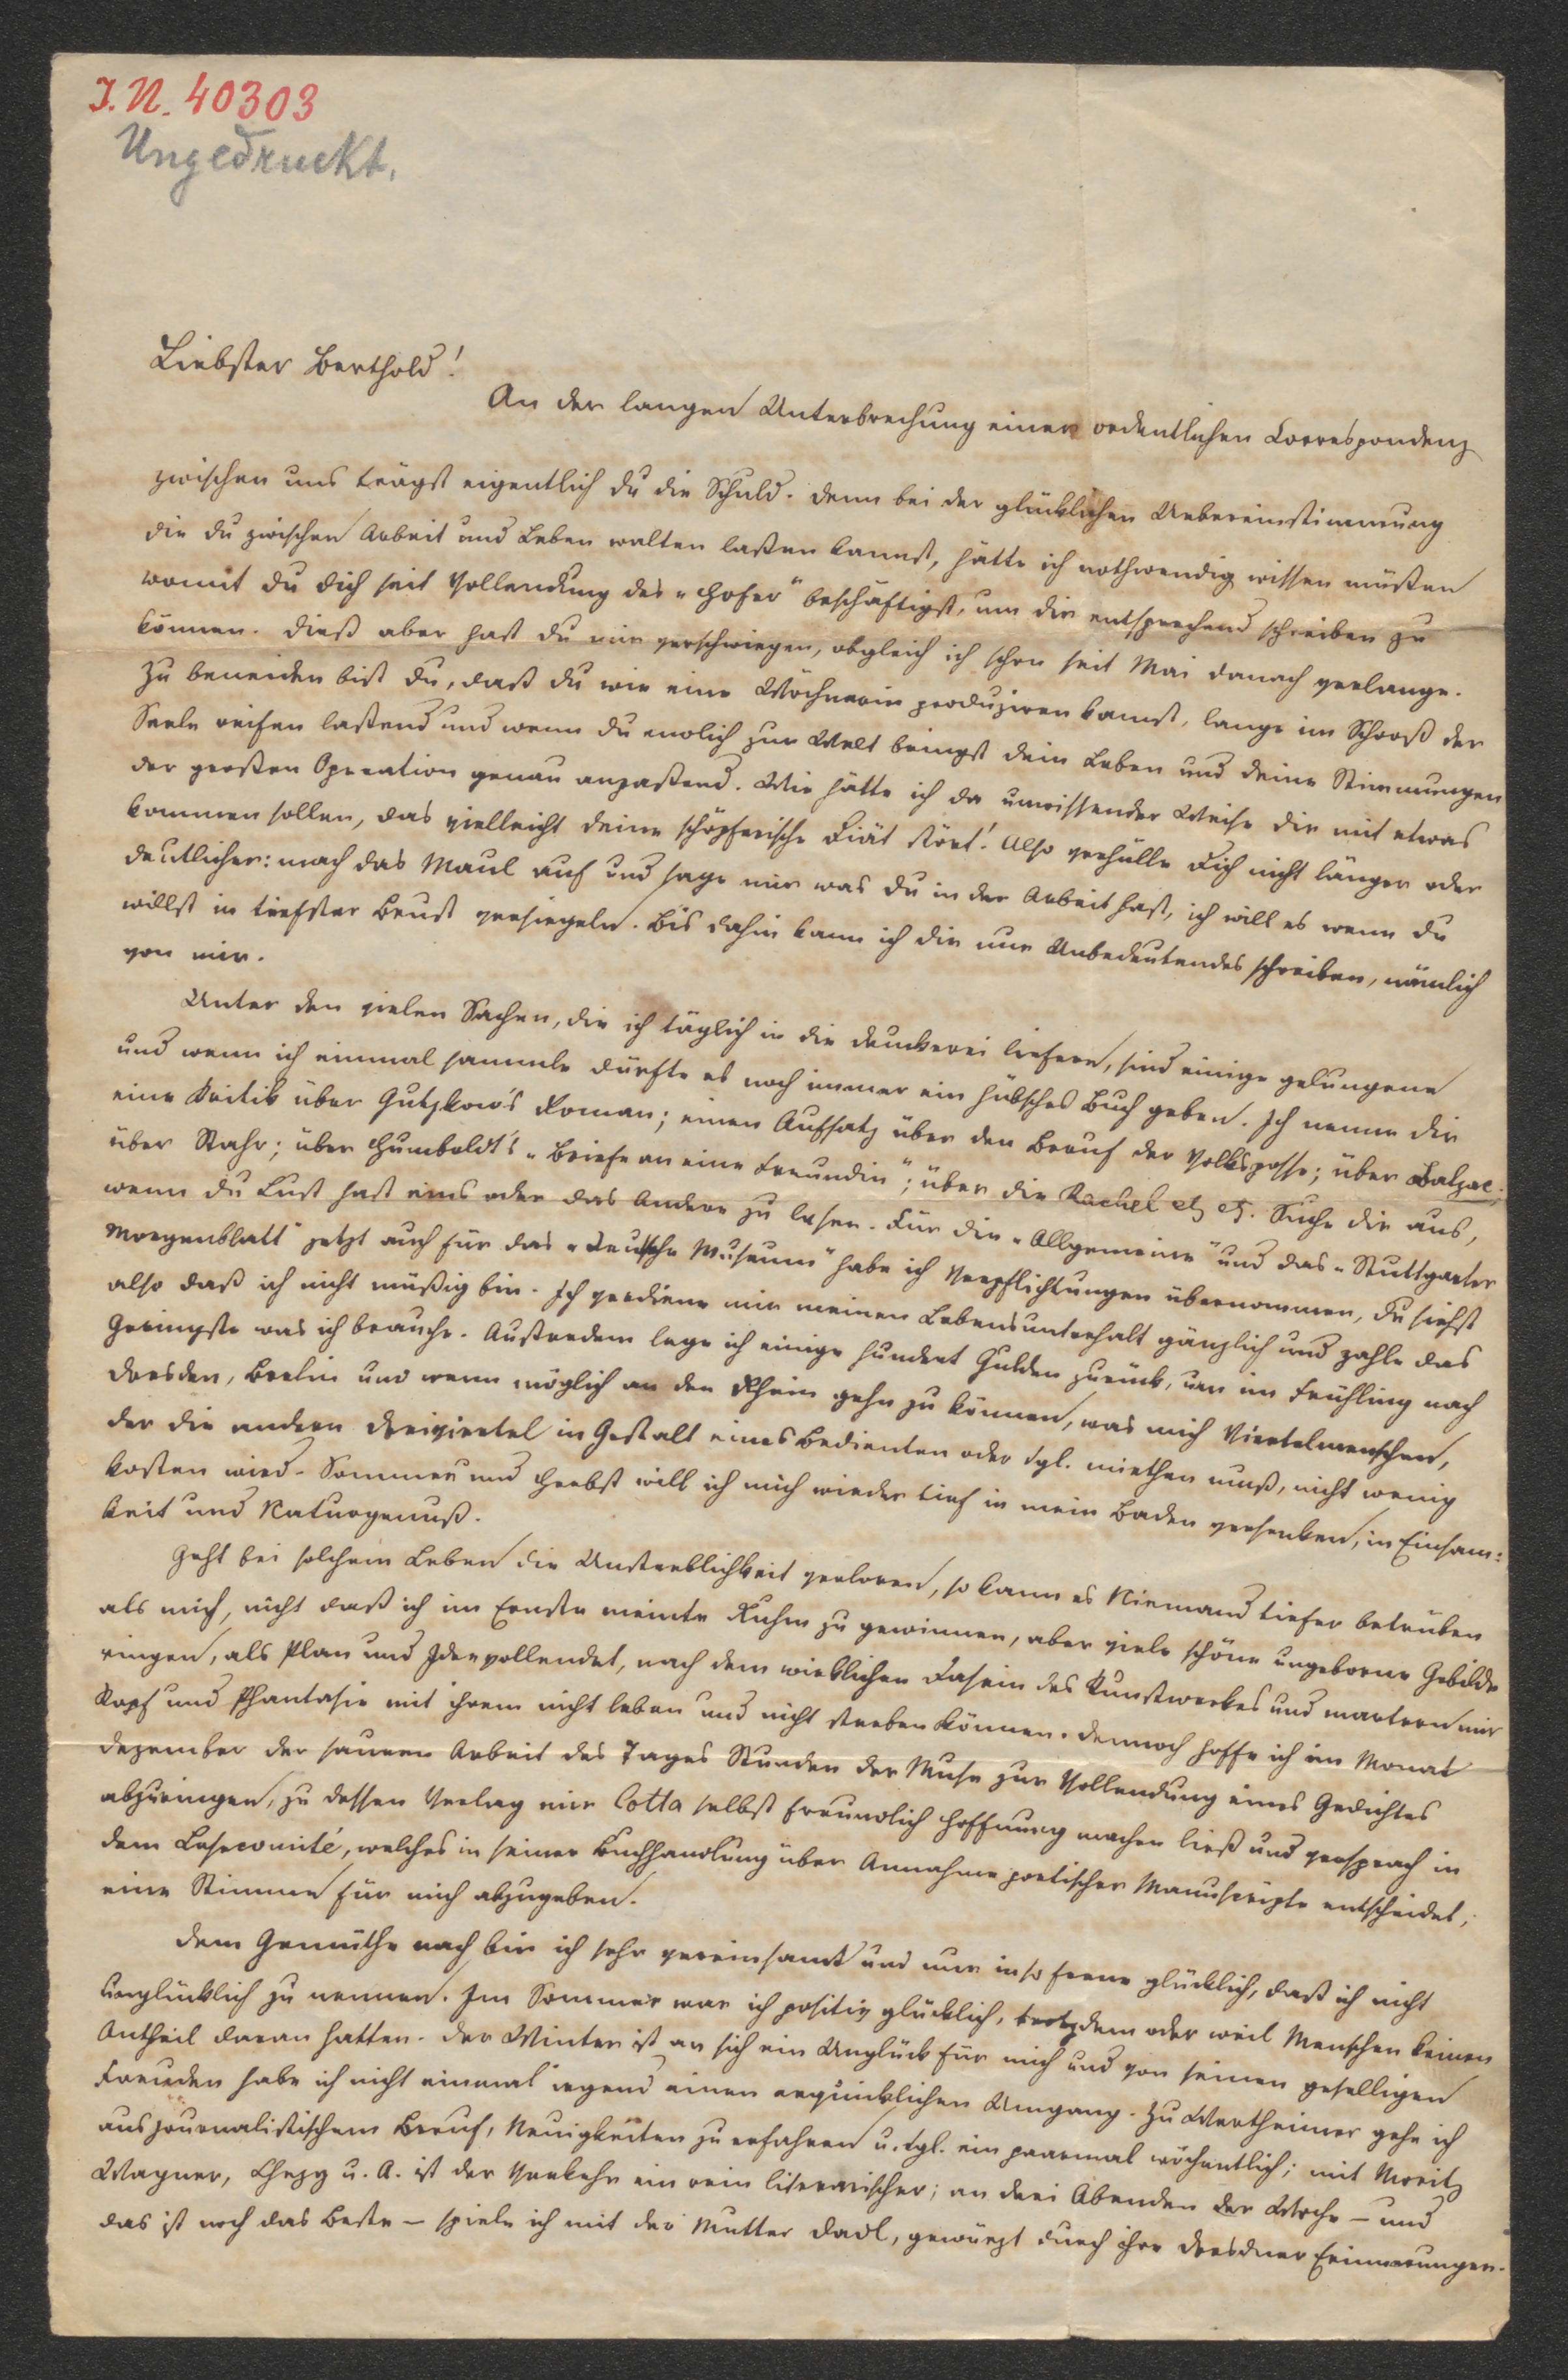 I. N. 40303
Ungedruckt.
Liebster Berthold!
An der langen Unterbrechung einer ordentlichen Correspondenz
zwischen uns trägst eigentlich du die Schuld. Denn bei der glücklichen Uebereinstimmung
die du zwischen Arbeit und Leben walten laßen kannst, hätte ich nothwendig wissen müßen
womit du dich seit Vollendung des „Hofer" beschäftigst, um dir entsprechend schreiben zu
können. Dieß aber hast du mir verschwiegen, obgleich ich schon seit Mai danach verlange.
Zu beneiden bist du, daß du wie eine Wöchnerin produziren kannst, lange im Schooß der
Seele reifen laßend und wenn du endlich zur Welt bringst dein Leben und deine Stimmungen
der großen Operation genau anpaßend. Wie hätte ich da unwissender Weise dir mit etwas
kommen sollen, das vielleicht deine schöpferische Diät stört! Also verhülle dich nicht länger oder
deutlicher: mach das Maul auf und sage mir was du in der Arbeit hast, ich will es wenn du
willst in tiefster Brust versiegeln. Bis dahin kann ich dir nur Unbedeutendes schreiben, nämlich
von mir.
Unter den vielen Sachen, die ich täglich in die Druckerei liefere, sind einige gelungene
und wenn ich einmal sammle dürfte es noch immer ein hübsches Buch geben. Ich nenne dir
eine Kritik über Gutzkow's Roman; einen Aufsatz über den Beruf der Volksposse; über Balzac;
über Stahr; über Humboldt's „Briefe an eine Freundin"; über die Rachel etz etz. Suche dir aus,
wenn du Lust hast eins oder das Andere zu lesen. Für die „Allgemeine" und das „Stuttgarter
Morgenblatt" jetzt auch für das „Deutsche Museum" habe ich Verpflichtungen übernommen, du siehst
also daß ich nicht müßig bin. Ich verdiene mir meinen Lebensunterhalt gänzlich und zahle das
Geringste was ich brauche. Außerdem lege ich einige hundert Gulden zurück, um im Frühling nach
Dresden, Berlin und wenn möglich an den Rhein gehn zu können, was mich Viertelmenschen,
der die andern Dreiviertel in Gestalt eines Bedienten oder dgl. miethen muß, nicht wenig
kosten wird. Sommer und Herbst will ich mich wieder tief in mein Baden versenken, in Einsam-
keit und Naturgenuß.
Geht bei solchem Leben die Unsterblichkeit verloren, so kann es Niemand tiefer betrüben
als mich, nicht daß ich im Ernste meinte Ruhm zu gewinnen, aber viele schöne ungeborne Gebilde
ringen, als Plan und Idee vollendet, nach dem wirklichen Dasein des Kunstwerkes und martern mir
Kopf und Phantasie mit ihrem nicht leben und nicht sterben können. Dennoch hoffe ich im Monat
Dezember der sauren Arbeit des Tages Stunden der Muse zur Vollendung eines Gedichtes
abzuringen, zu dessen Verlag mir Cotta selbst freundlich Hoffnung machen ließ und versprach in
dem Lesecomité, welches in seiner Buchhandlung über Annahme poetischer Manuscripte entscheidet,
eine Stimme für mich abzugeben.
Dem Gemüthe nach bin ich sehr vereinsamt und nur in so ferne glücklich, daß ich nicht
unglücklich zu nennen. Im Sommer war ich positiv glücklich, trotzdem oder weil Menschen keinen
Antheil daran hatten. Der Winter ist an sich ein Unglück für mich und von seinen geselligen
Freuden habe ich nicht einmal irgend einen erquicklichen Umgang. Zu Wertheimer gehe ich
aus journalistischem Beruf, Neuigkeiten zu erfahren u. dgl. ein paarmal wöchentlich; mit Moritz
Wagner, Chezy u. A. ist der Verkehr ein rein literarischer; an drei Abenden der Woche – und
das ist noch das Beste – spiele ich mit der Mutter Dadl, gewürzt durch ihre Dresdner Erinnerungen.